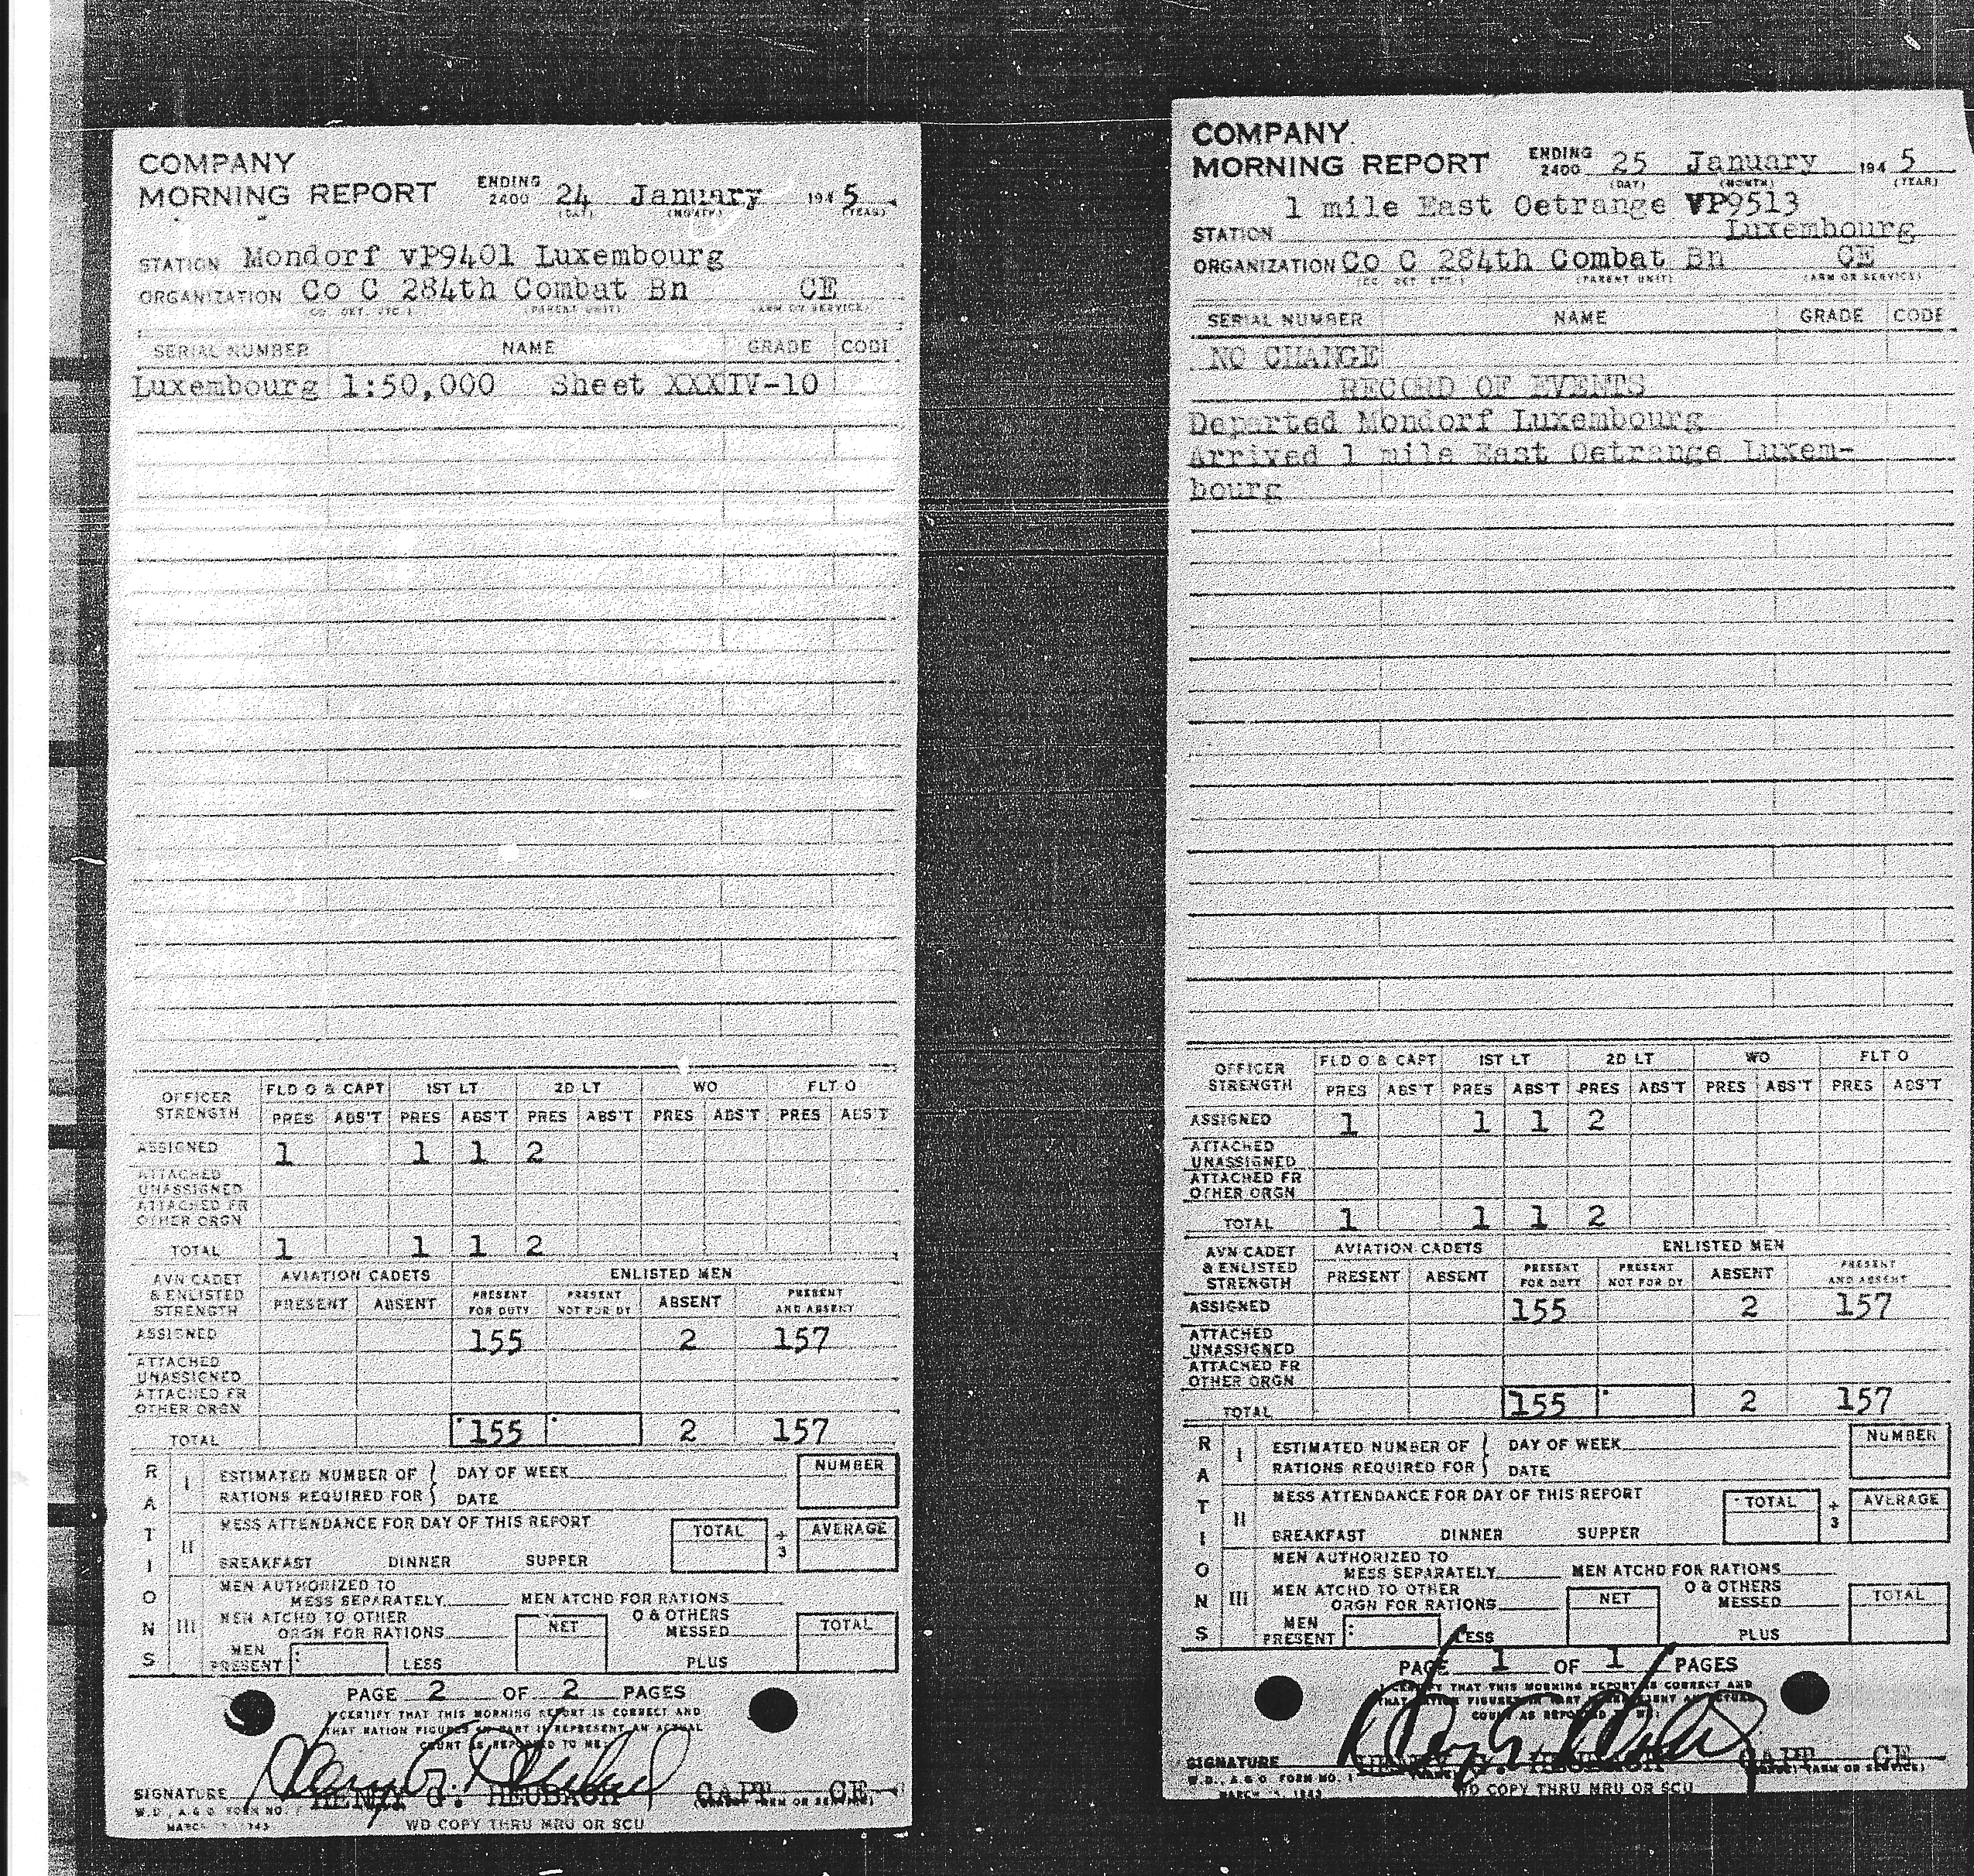 COMPANY
MORNING REPORT ENDING 2400 24 January 1945
(DAY) (MONTH) (YEAR)
STATION Mondorf vP9401 Luxembourg
ORGANIZATION Co C 284th Combat Bn CE
(CO. DET. ETC.) (PARENT UNIT) (ARM OR SERVICE)
SERIAL NUMBER NAME GRADE CODE
Luxembourg 1:50,000 Sheet XXXIV-10
OFFICER STRENGTH FLD O & CAPT 1ST LT 2D LT WO FLT O
PRES ABS'T PRES ABS'T PRES ABS'T PRES ABS'T PRES ABS'T
ASSIGNED 1 1 1 2
ATTACHED UNASSIGNED
ATTACHED FR OTHER ORGN
TOTAL 1 1 1 2
AVN CADET & ENLISTED STRENGTH AVIATION CADETS ENLISTED MEN
PRESENT ABSENT PRESENT FOR DUTY PRESENT NOT FOR DY ABSENT PRESENT AND ABSENT
ASSIGNED 155 2 157
ATTACHED UNASSIGNED
ATTACHED FR OTHER ORGN
TOTAL 155 2 157
RATIONS
I ESTIMATED NUMBER OF DAY OF WEEK NUMBER
RATIONS REQUIRED FOR DATE
II MESS ATTENDANCE FOR DAY OF THIS REPORT TOTAL ÷ 3 AVERAGE
BREAKFAST DINNER SUPPER
III MEN AUTHORIZED TO
MESS SEPARATELY MEN ATCHD FOR RATIONS
MEN ATCHD TO OTHER O & OTHERS
ORGN FOR RATIONS NET MESSED TOTAL
MEN PRESENT LESS PLUS
PAGE 2 OF 2 PAGES
I CERTIFY THAT THIS MORNING REPORT IS CORRECT AND
THAT RATION FIGURES IN PART II REPRESENT AN ACTUAL
COUNT AS REPORTED TO ME:
SIGNATURE HENRY G. HEUBACH CAPT CE
W.D., A.G.O. FORM NO. 1
MARCH 1943 WD COPY THRU MRU OR SCU
COMPANY
MORNING REPORT ENDING 2400 25 January 1945
(DAY) (MONTH) (YEAR)
1 mile East Oetrange VP9513
STATION Luxembourg
ORGANIZATION Co C 284th Combat Bn CE
(CO. DET. ETC.) (PARENT UNIT) (ARM OR SERVICE)
SERIAL NUMBER NAME GRADE CODE
NO CHANGE
RECORD OF EVENTS
Departed Mondorf Luxembourg
Arrived 1 mile East Oetrange Luxem-
bourg
OFFICER STRENGTH FLD O & CAPT 1ST LT 2D LT WO FLT O
PRES ABS'T PRES ABS'T PRES ABS'T PRES ABS'T PRES ABS'T
ASSIGNED 1 1 1 2
ATTACHED UNASSIGNED
ATTACHED FR OTHER ORGN
TOTAL 1 1 1 2
AVN CADET & ENLISTED STRENGTH AVIATION CADETS ENLISTED MEN
PRESENT ABSENT PRESENT FOR DUTY PRESENT NOT FOR DY ABSENT PRESENT AND ABSENT
ASSIGNED 155 2 157
ATTACHED UNASSIGNED
ATTACHED FR OTHER ORGN
TOTAL 155 2 157
RATIONS
I ESTIMATED NUMBER OF DAY OF WEEK NUMBER
RATIONS REQUIRED FOR DATE
II MESS ATTENDANCE FOR DAY OF THIS REPORT TOTAL ÷ 3 AVERAGE
BREAKFAST DINNER SUPPER
III MEN AUTHORIZED TO
MESS SEPARATELY MEN ATCHD FOR RATIONS
MEN ATCHD TO OTHER O & OTHERS
ORGN FOR RATIONS NET MESSED TOTAL
MEN PRESENT LESS PLUS
PAGE 1 OF 1 PAGES
I CERTIFY THAT THIS MORNING REPORT IS CORRECT AND
THAT RATION FIGURES IN PART II REPRESENT AN ACTUAL
COUNT AS REPORTED TO ME:
SIGNATURE HENRY G. HEUBACH CAPT CE
W.D., A.G.O. FORM NO. 1
MARCH 1943 WD COPY THRU MRU OR SCU